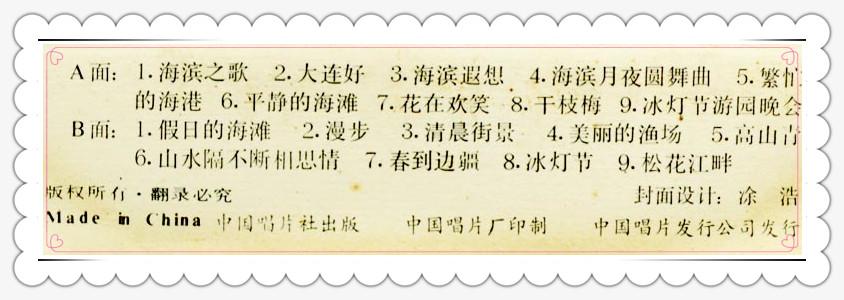 A面：1.海滨之歌 2.大连好 3.海滨遐想 4.海滨月夜圆舞曲 5.繁忙
的海港 6.平静的海滩 7.花在欢笑 8.干枝梅 9.冰灯节游园晚会
B面：1.假日的海滩 2.漫步 3.清晨街景 4.美丽的渔场 5.高山青
6.山水隔不断相思情 7.春到边疆 8.冰灯节 9.松花江畔
版权所有·翻录必究 封面设计：涂 浩
Made in China 中国唱片社出版 中国唱片厂印制 中国唱片发行公司发行